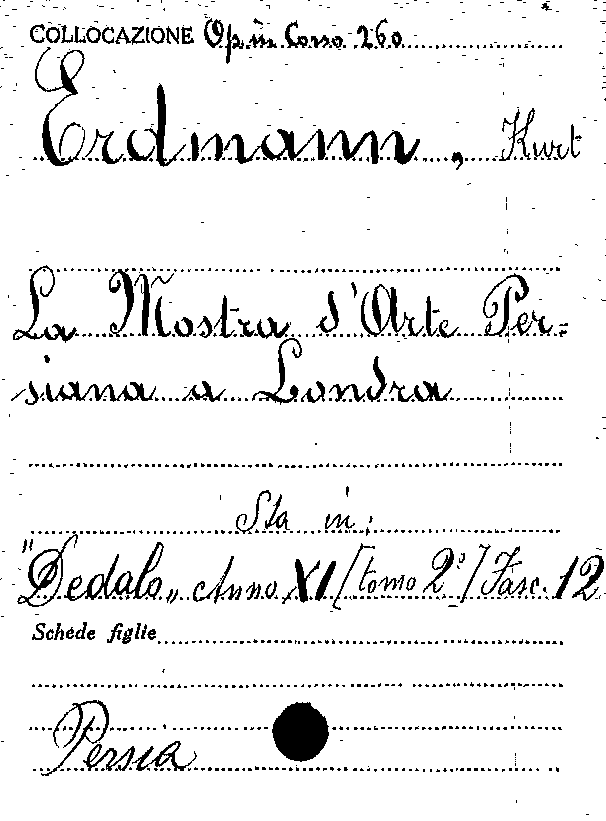 COLLOCAZIONE Op in Corso 260
Erdmann, Kurt
La Mostra d'Arte Per=
siana a Londra
Sta in:
"Dedalo„ Anno XI [tomo 2°] Fasc. 12
Schede figlie
Persia